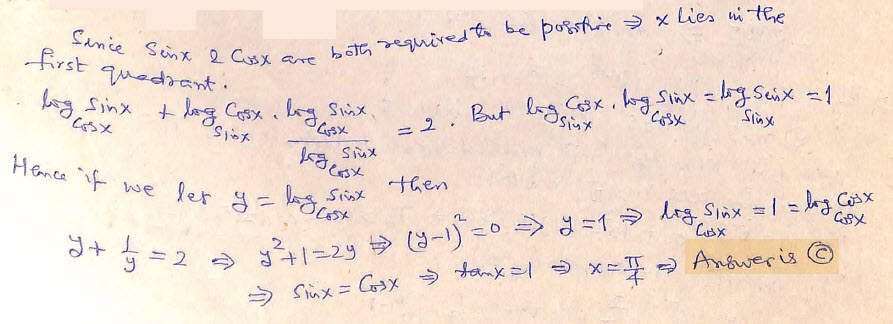 Since Sinx & Cosx are both required to be positive ⇒ x lies in the
first quadrant.
log_Cosx Sinx + log_Sinx Cosx . log_Cosx Sinx / log_Cosx Sinx = 2 . But log_Sinx Cosx . log_Cosx Sinx = log_Sinx Sinx = 1
Hence if we let y = log_Cosx Sinx then
y + 1/y = 2 ⇒ y² + 1 = 2y ⇒ (y-1)² = 0 ⇒ y = 1 ⇒ log_Cosx Sinx = 1 = log_Cosx Cosx
⇒ Sinx = Cosx ⇒ tanx = 1 ⇒ x = π/4 ⇒ Answer is Ⓒ